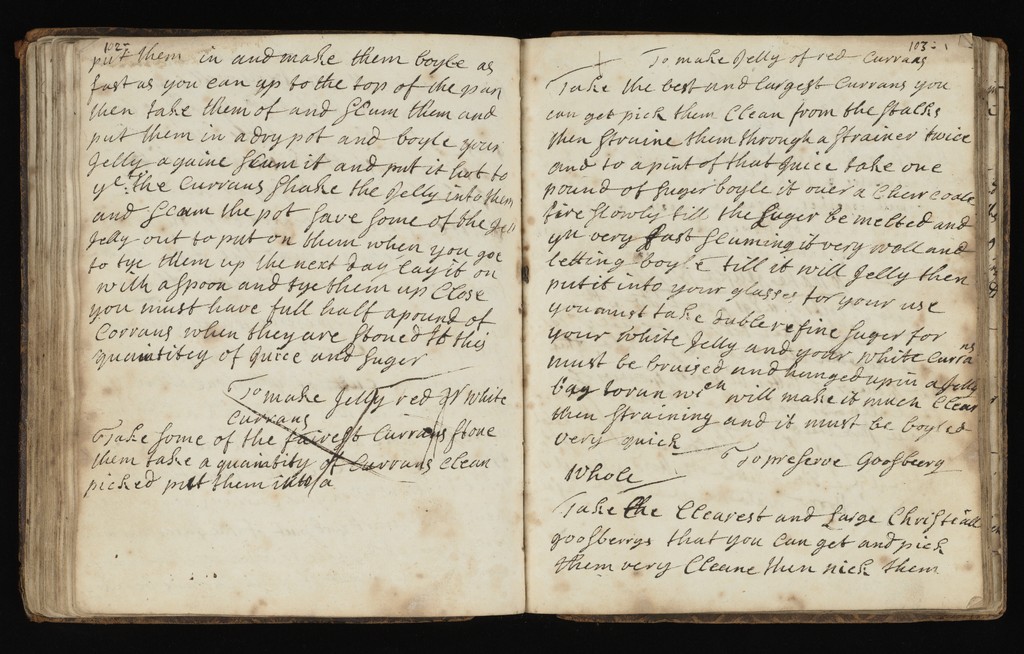 102
put them in and make them boyle as
fast as you can up to the top of the pan
then take them of and scum them and
put them in a dry pot and boyle your
Jelly againe scum it and put it hot to
yet the Currans shake the Jelly into them
and scum the pot save some of the
Jelly out to put on them when you goe
to tye them up the next day lay it on
with a spoon and tye them up Close
you must have full half a pound of
Corrans when they are stoned to this
quaintitey of Juice and suger
To make Jelly red or White
Currans
Take some of the fairest Currans stone
them take a quaintity of Currans Clean
picked put them into a
103
To make Jelly of red Currans
Take the best and largest Currans you
can get pick them Clean from the stalks
then straine them through a strainer twice
and to a pint of that Juice take one
pound of suger boyle it over a Clear coale
fire slowly till the suger be melted and
yn very fast scuming it very well and
letting boyle till it will Jelly then
put it into your glasses for your use
you must take duble refine suger for
your white Jelly and your white Currans
must be bruised and hunged up in a Jelly
bag wch will make it much Clear
then straining and it must be boyled
very quick
To preserve Goosbeery
Whole
Take the Clearest and Large Christiall
goosberrys that you can get and pick
them very Cleane then nick them